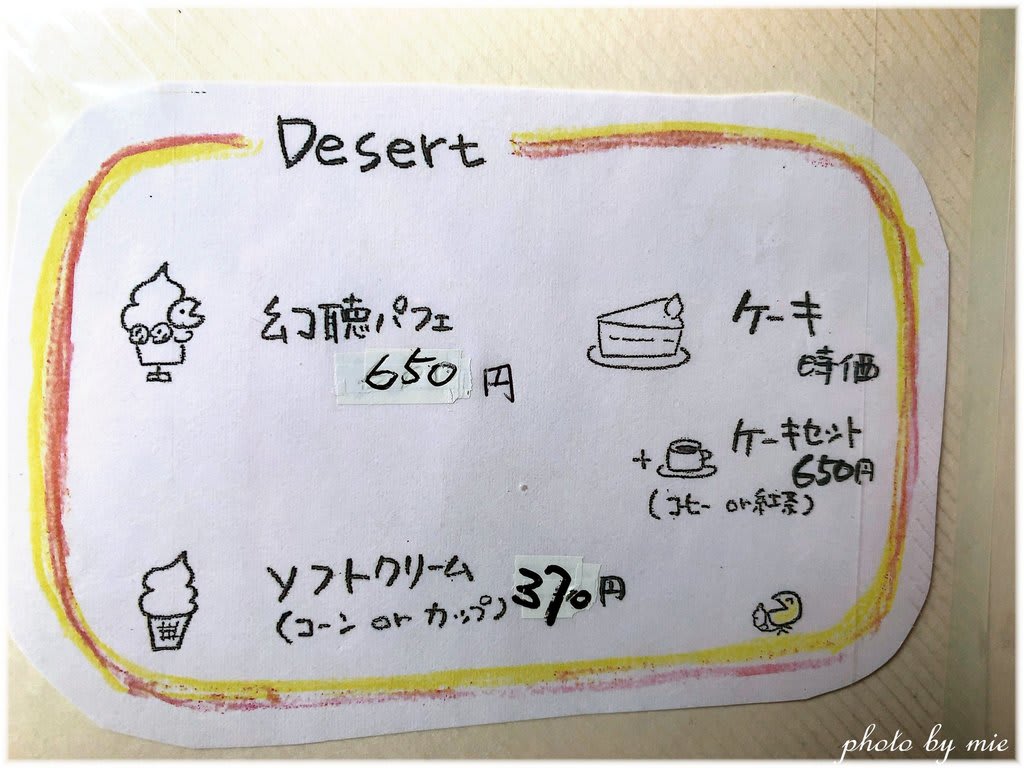 Desert
幻聴パフェ
650円
ソフトクリーム 370円
(コーン or カップ)
ケーキ
時価
+ ケーキセット
650円
(コーヒー or 紅茶)
photo by mie